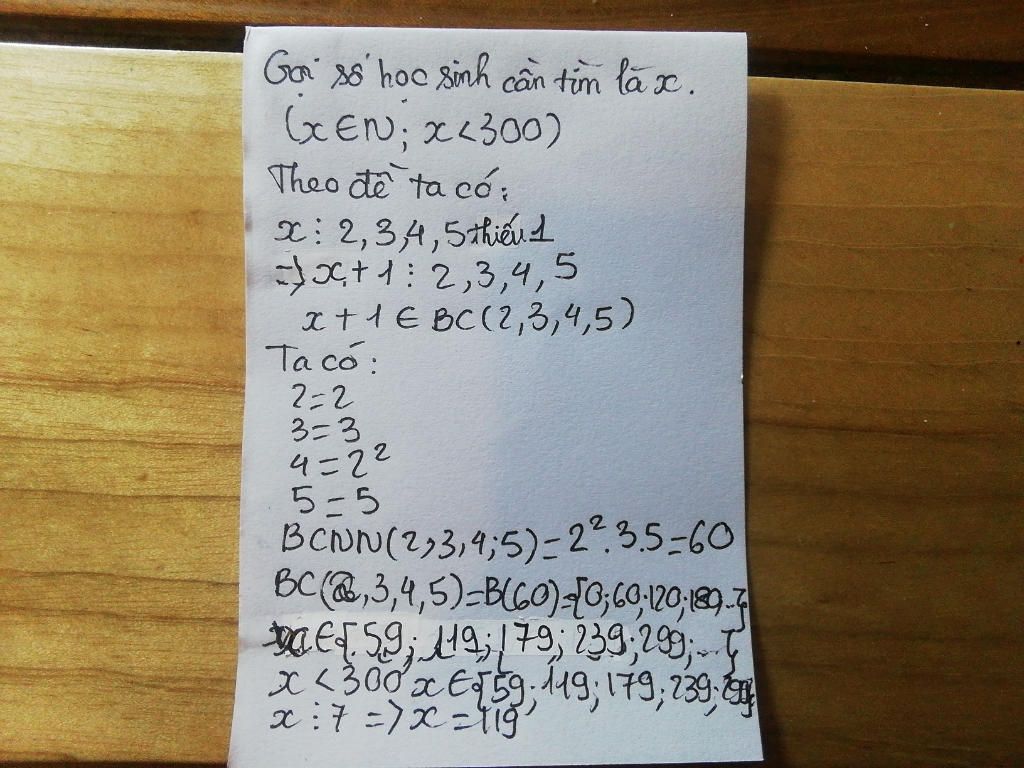 Gọi số học sinh cần tìm là x.
(x ∈ N; x < 300)
Theo đề ta có:
x ⋮ 2, 3, 4, 5 thiếu 1
=> x + 1 ⋮ 2, 3, 4, 5
x + 1 ∈ BC(2, 3, 4, 5)
Ta có:
2 = 2
3 = 3
4 = 2²
5 = 5
BCNN(2, 3, 4; 5) = 2².3.5 = 60
BC(2, 3, 4, 5) = B(60) = {0; 60; 120; 180...}
x ∈ {59; 119; 179; 239; 299; ...}
x < 300 x ∈ {59; 119; 179; 239; 299}
x ⋮ 7 => x = 119